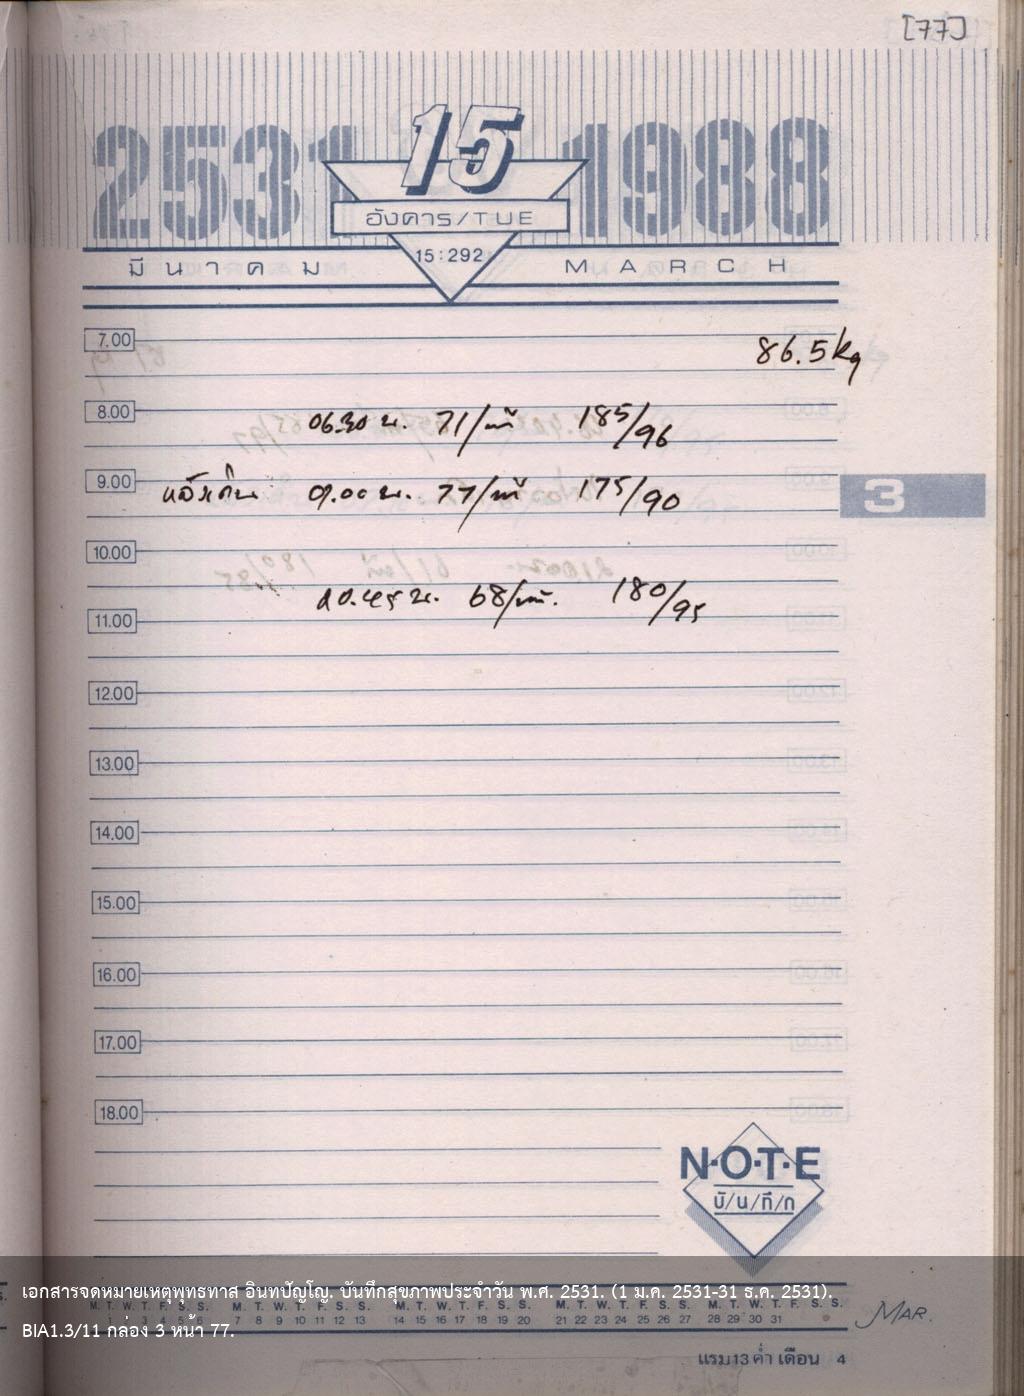 [77]
2531 15 1988
อังคาร/TUE
มีนาคม 15:292 MARCH
7.00 86.5 kg
8.00
06.30 น. 71/นาที 185/96
9.00 หลังเดิน 9.00 น. 77/นาที 175/90
3
10.00
20.45 น. 68/นาที. 180/95
11.00
12.00
13.00
14.00
15.00
16.00
17.00
18.00
N·O·T·E
บั/น/ทึ/ก
เอกสารจดหมายเหตุพุทธทาส อินทปัญโญ. บันทึกสุขภาพประจำวัน พ.ศ. 2531. (1 ม.ค. 2531-31 ธ.ค. 2531).
M. T. W. T. F. S. S. M. T. W. T. F. S. S. M. T. W. T. F. S. S. M. T. W. T. F. S. S. M. T. W. T. F. S. S.
1 2 3 4 5 6 7 8 9 10 11 12 13 14 15 16 17 18 19 20 21 22 23 24 25 26 27 28 29 30 31
MAR.
BIA1.3/11 กล่อง 3 หน้า 77.
แรม 13 ค่ำ เดือน 4